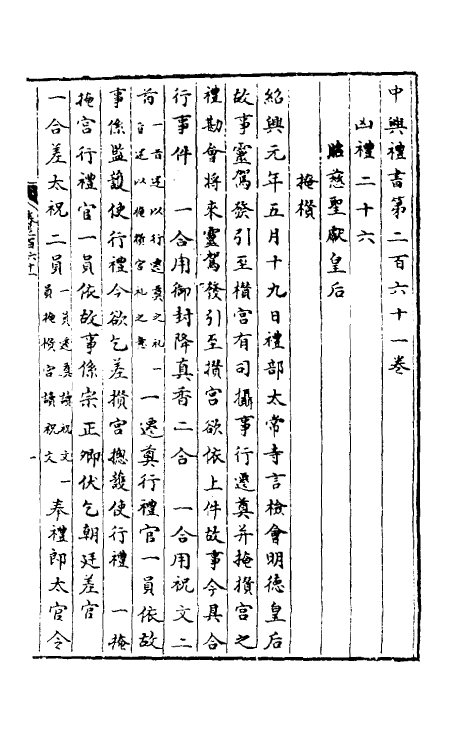 中興禮書第二百六十一卷
凶禮二十六
昭慈聖獻皇后
掩攢
紹興元年五月十九日禮部太常寺言檢會明德皇后
故事靈駕發引至攢宮有司攝事行遷奠并掩攢宮之
禮勘會將來靈駕發引至攢宮欲依上件故事今具合
行事件　一合用御封降真香二合　一合用祝文二
首一首述以行遷奠之礼一首述以掩攢宮礼之意　一遷奠行禮官一員依故
事係監護使行禮今欲乞差攢宮摠護使行禮　一掩
掩宮行禮官一員依故事係宗正卿伏乞朝廷差官
一合差太祝二員一員遷奠讀祝文一員掩攢宮讀祝文　一奉禮郎太官令